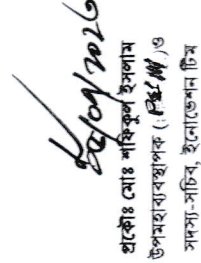 প্রকৌঃ মোঃ শফিকুল ইসলাম
উপমহাব্যবস্থাপক (
)ও
সদস্য-সচিব, ইনোভেশন টিম